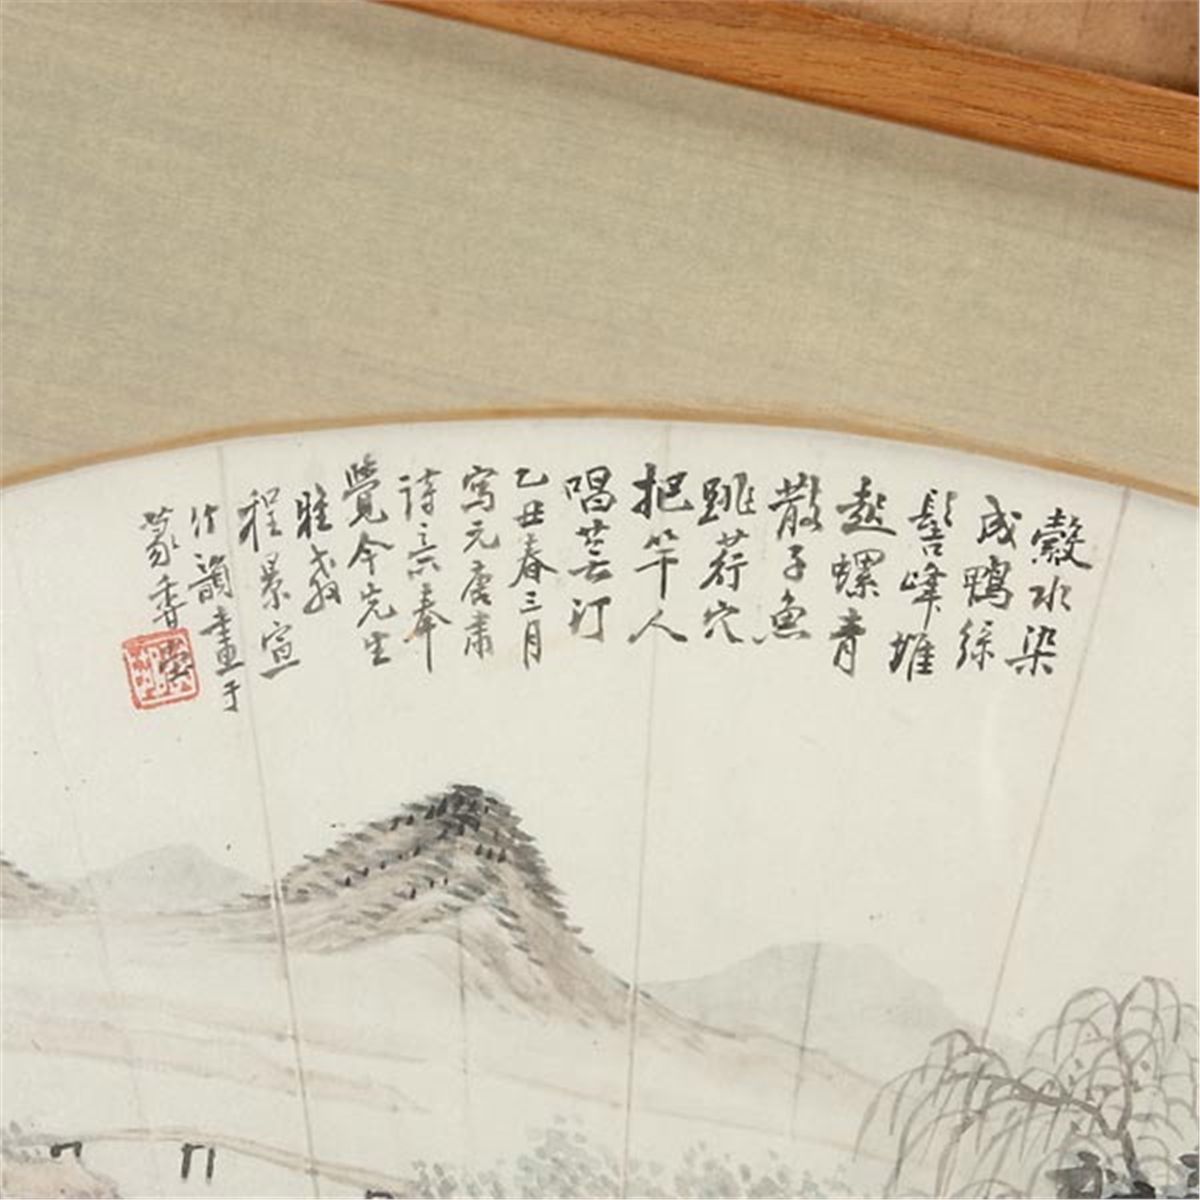 縠水染
成鴨綠
髻峰堆
起螺青
散子魚
跳荇穴
把竿人
唱芸汀
乙丑春三月
寫元唐肅
詩意奉
覺今先生
雅教
程景宣
作韻畫于
篆香